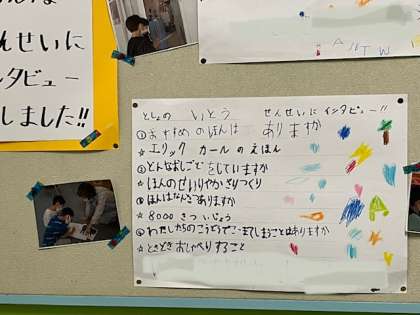 せんせいに
インタビュー
しました!!
としょの いとう せんせいに インタビュー!!
①おすすめ のほんは ありますか
☆エリック カール の えほん
②どんなおしごとをしていますか
☆ほんのせいりやかざりつくり
③ほんはなんさつありますか
☆8000 さつ いじょう
④わたしたちのこうどうでこまてしまうことはありますか
☆ときどきおしゃべりすること